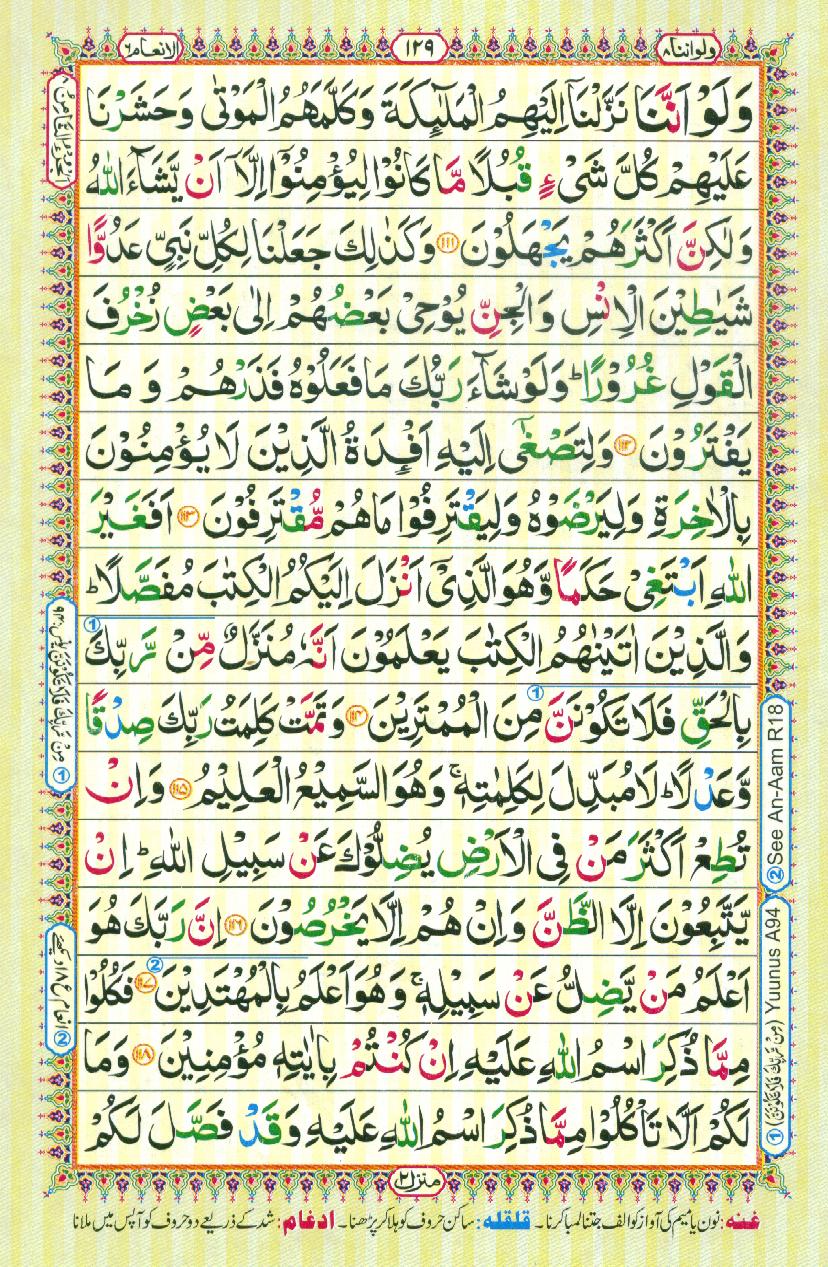 الانعام ٦
١٢٩
ولواننا ٨
وَلَوْ اَنَّنَا نَزَّلْنَاۤ اِلَيْهِمُ الْمَلٰٓئِكَةَ وَكَلَّمَهُمُ الْمَوْتٰى وَحَشَرْنَا
عَلَيْهِمْ كُلَّ شَىْءٍ قُبُلًا مَّا كَانُوْا لِيُؤْمِنُوْۤا اِلَّاۤ اَنْ يَّشَآءَ اللّٰهُ
وَلٰكِنَّ اَكْثَرَهُمْ يَجْهَلُوْنَ ﴿١١١﴾ وَكَذٰلِكَ جَعَلْنَا لِكُلِّ نَبِىٍّ عَدُوًّا
شَيٰطِيْنَ الْاِنْسِ وَالْجِنِّ يُوْحِىْ بَعْضُهُمْ اِلٰى بَعْضٍ زُخْرُفَ
الْقَوْلِ غُرُوْرًا ؕ وَلَوْ شَآءَ رَبُّكَ مَا فَعَلُوْهُ فَذَرْهُمْ وَمَا
يَفْتَرُوْنَ ﴿١١٢﴾ وَلِتَصْغٰۤى اِلَيْهِ اَفْـِٕدَةُ الَّذِيْنَ لَا يُؤْمِنُوْنَ
بِالْاٰخِرَةِ وَلِيَرْضَوْهُ وَلِيَقْتَرِفُوْا مَا هُمْ مُّقْتَرِفُوْنَ ﴿١١٣﴾ اَفَغَيْرَ
اللّٰهِ اَبْتَغِىْ حَكَمًا وَّهُوَ الَّذِىْۤ اَنْزَلَ اِلَيْكُمُ الْكِتٰبَ مُفَصَّلًا ؕ
وَالَّذِيْنَ اٰتَيْنٰهُمُ الْكِتٰبَ يَعْلَمُوْنَ اَنَّهٗ مُنَزَّلٌ مِّنْ رَّبِّكَ
بِالْحَقِّ فَلَا تَكُوْنَنَّ مِنَ الْمُمْتَرِيْنَ ﴿١١٤﴾ وَتَمَّتْ كَلِمَتُ رَبِّكَ صِدْقًا
وَّعَدْلًا ؕ لَا مُبَدِّلَ لِكَلِمٰتِهٖ ۚ وَهُوَ السَّمِيْعُ الْعَلِيْمُ ﴿١١٥﴾ وَاِنْ
تُطِعْ اَكْثَرَ مَنْ فِى الْاَرْضِ يُضِلُّوْكَ عَنْ سَبِيْلِ اللّٰهِ ؕ اِنْ
يَّتَّبِعُوْنَ اِلَّا الظَّنَّ وَاِنْ هُمْ اِلَّا يَخْرُصُوْنَ ﴿١١٦﴾ اِنَّ رَبَّكَ هُوَ
اَعْلَمُ مَنْ يَّضِلُّ عَنْ سَبِيْلِهٖ ۚ وَهُوَ اَعْلَمُ بِالْمُهْتَدِيْنَ ﴿١١٧﴾ فَكُلُوْا
مِمَّا ذُكِرَ اسْمُ اللّٰهِ عَلَيْهِ اِنْ كُنْتُمْ بِاٰيٰتِهٖ مُؤْمِنِيْنَ ﴿١١٨﴾ وَمَا
لَكُمْ اَلَّا تَاْكُلُوْا مِمَّا ذُكِرَ اسْمُ اللّٰهِ عَلَيْهِ وَقَدْ فَصَّلَ لَكُمْ
② See An-Aam R18
① Yuunus A94
منزل ٢
غنه: نون یا میم کی آواز کو الف جتنا لمبا کرنا۔ قلقله: ساکن حروف کو ہلا کر پڑھنا۔ ادغام: شد کے ذریعے دو حروف کو آپس میں ملانا